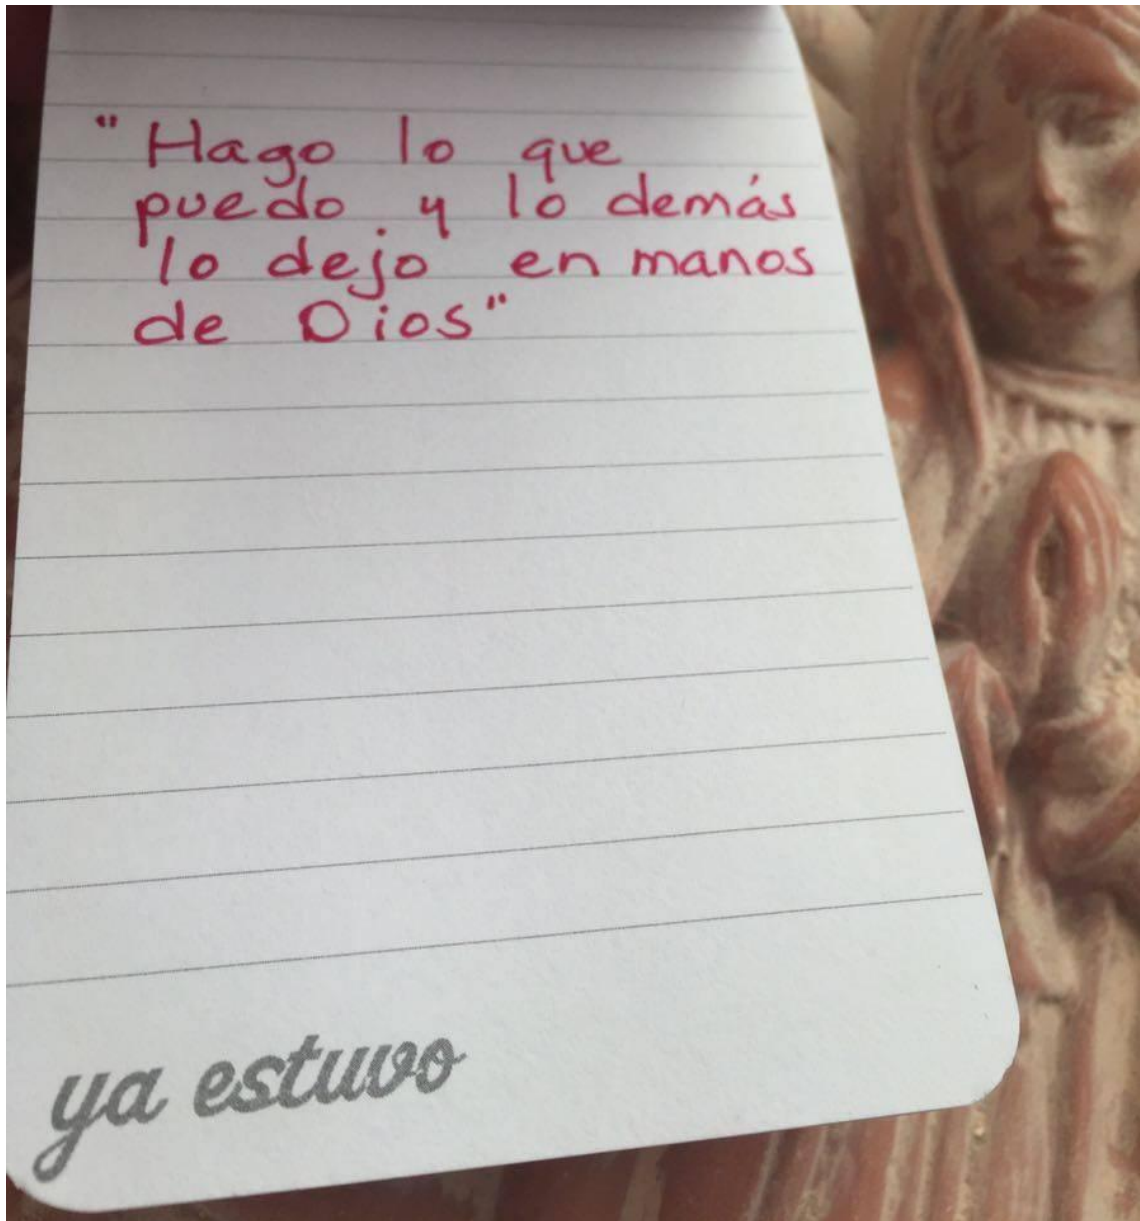 "Hago lo que
puedo y lo demás
lo dejo en manos
de Dios"
ya estuvo